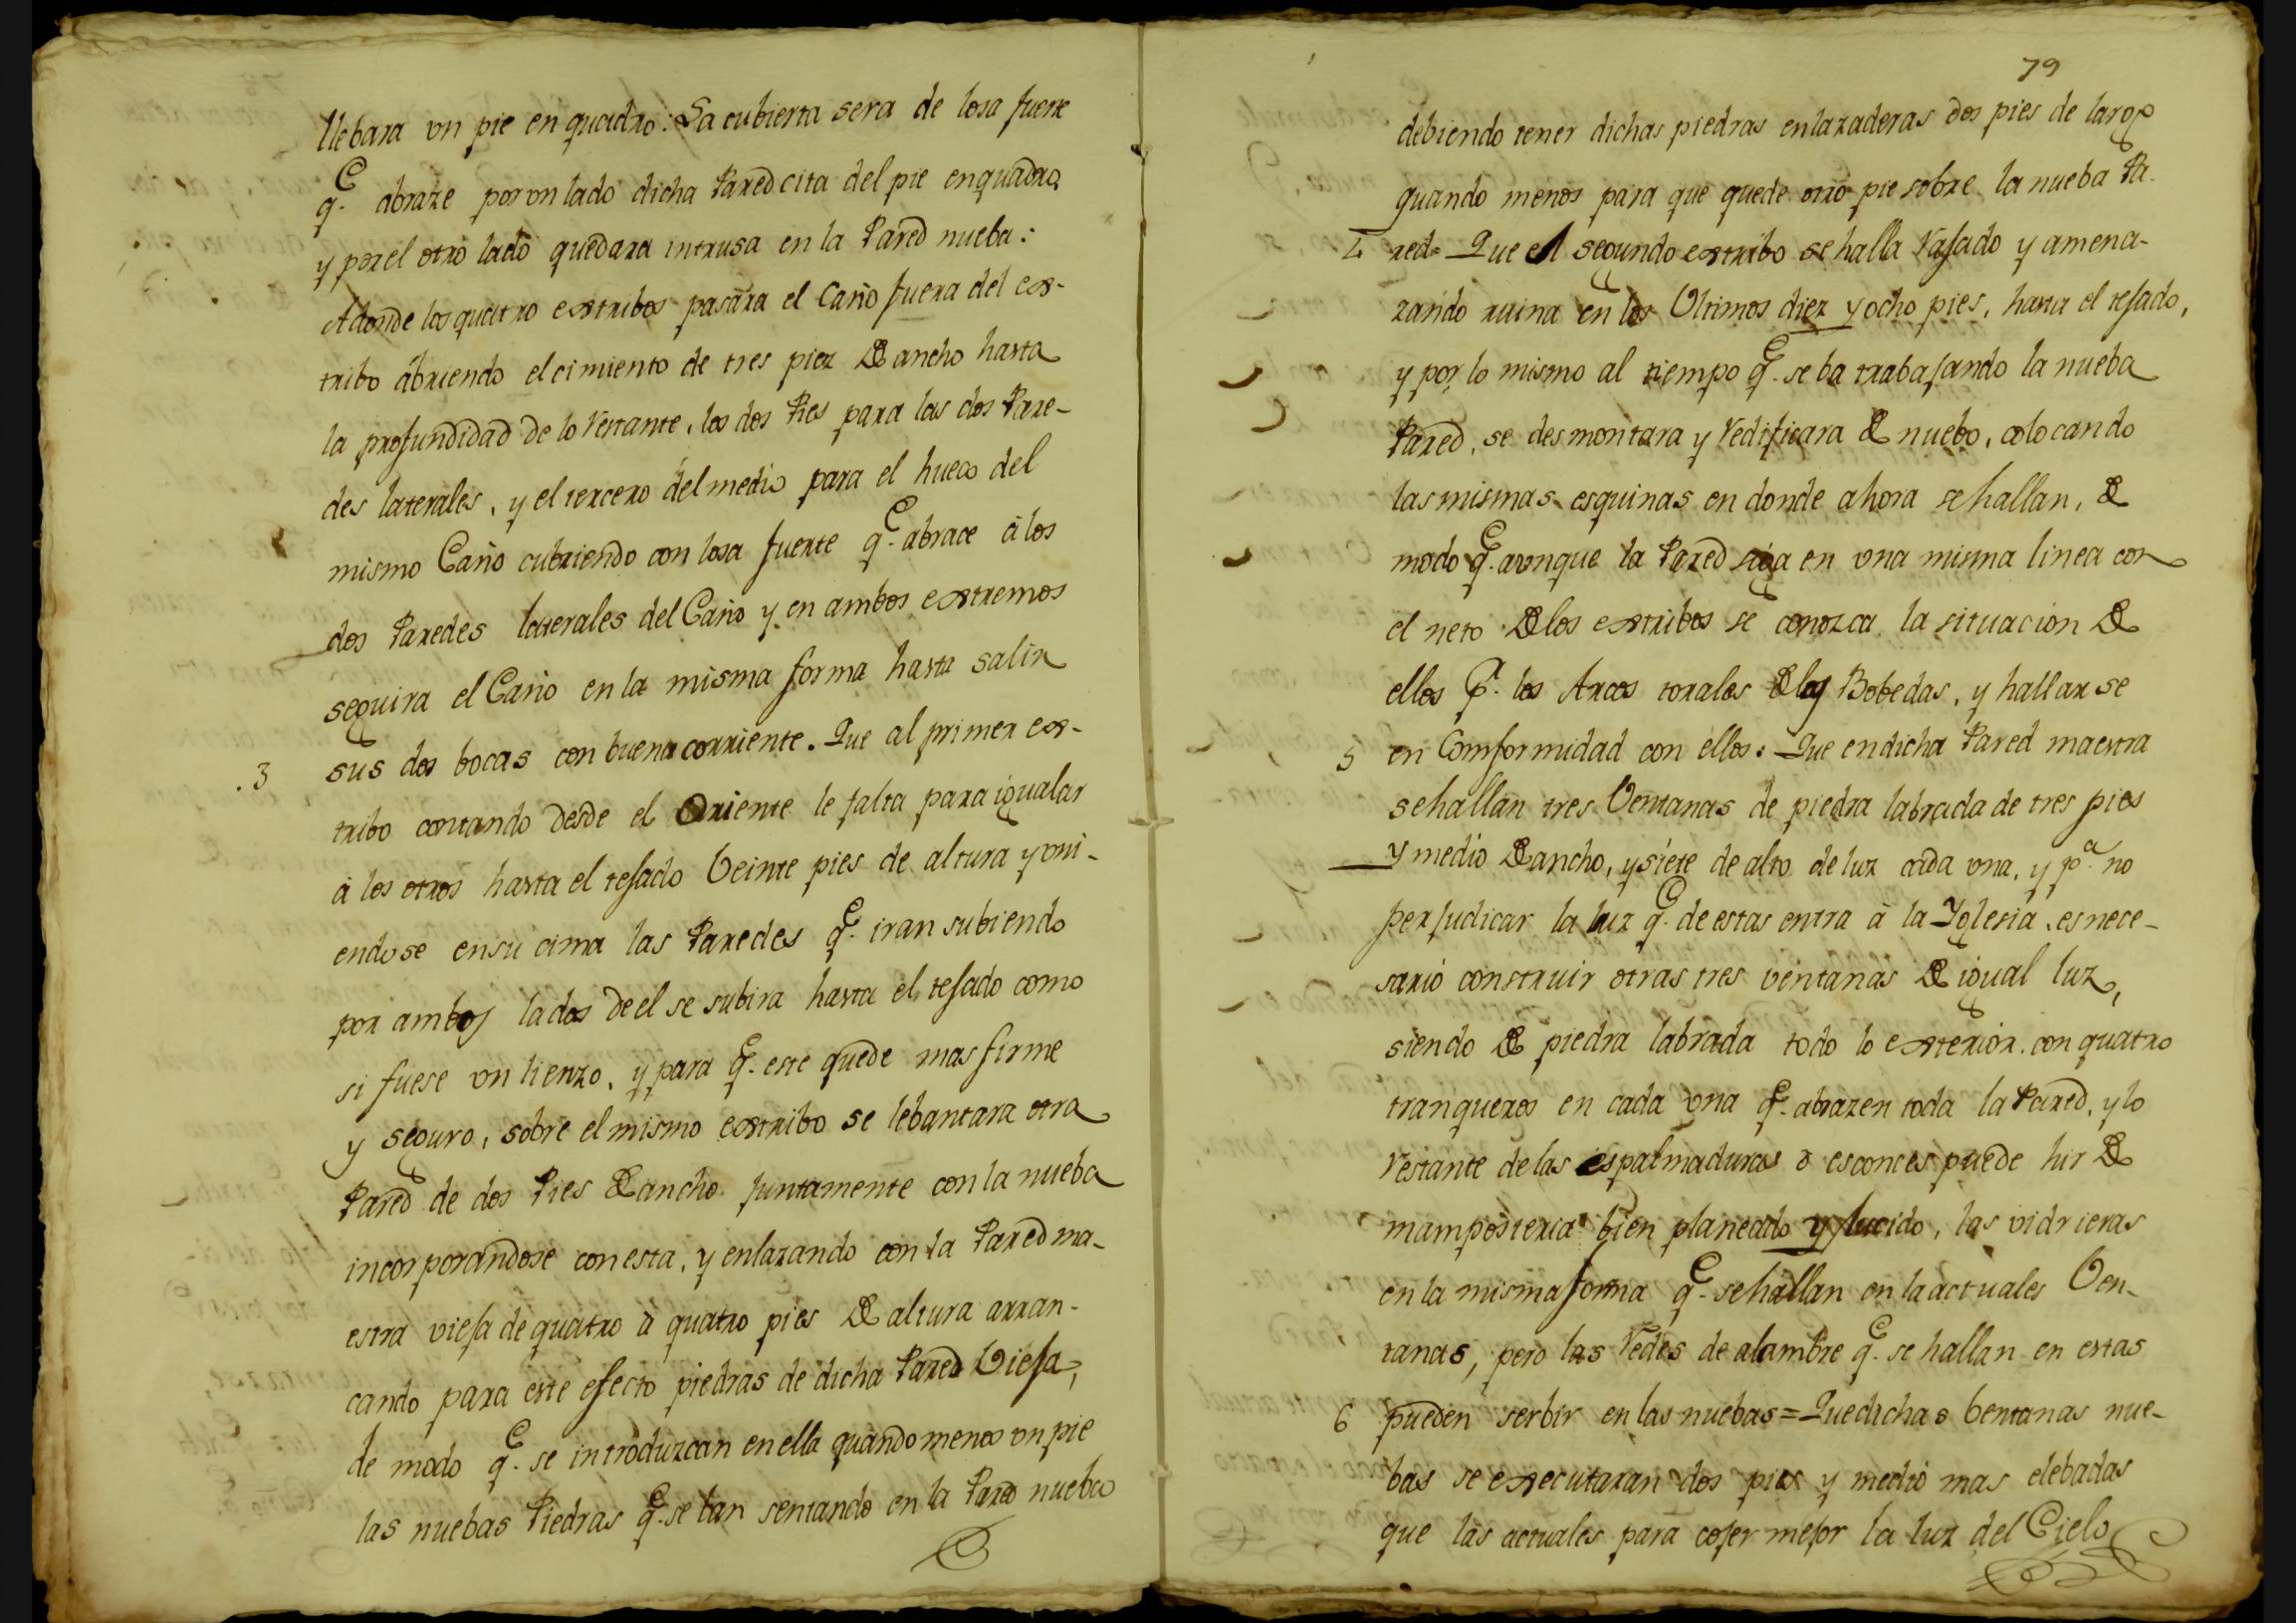 llebara vn pie en quadro: La cubierta sera de losa fuerte
q.e abraze por vn lado dicha Paredcita del pie en quadro,
y por el otro lado quedara intrusa en la Pared nueba:
A donde los quatro estribos pasara el Caño fuera del es-
tribo abriendo el cimiento de tres piez de ancho hasta
la profundidad de lo restante, los dos Pies para las dos Pare-
des laterales, y el tercero del medio para el hueco del
mismo Caño cubriendo con losa fuerte q.e abrace à los
dos Paredes laterales del Caño y en ambos extremos
seguira el Caño en la misma forma hasta salir
.3 sus dos bocas con buena corriente. Que al primer es-
tribo contando desde el Oriente le falta para igualar
à los otros hasta el tejado Veinte pies de altura y vni-
endose en su cima las Paredes q.e iran subiendo
por ambos lados de el se subira hasta el tejado como
si fuese vn lienzo, y para q.e este quede mas firme
y seguro, sobre el mismo estribo se lebantara otra
Pared de dos Pies de ancho juntamente con la nueba
incorporandose con esta, y enlazando con la Pared ma-
estra vieja de quatro à quatro pies de altura arran-
cando para este efecto piedras de dicha Pared Vieja,
de modo q.e se introduzcan en ella quando menos vn pie
las nuebas Piedras q.e se ban sentando en la Pared nueba
79
debiendo tener dichas piedras enlazaderas dos pies de largo
quando menos para que quede otro pie sobre la nueba Pa-
4 red= Que el segundo estribo se halla rajado y amena-
zando ruina en los Ultimos diez y ocho pies, hasta el tejado,
y por lo mismo al tiempo q.e se ba trabajando la nueba
Pared, se desmontara y redificara de nuebo, colocando
las mismas esquinas en donde ahora se hallan, de
modo q.e aunque la Pared siga en vna misma linea con
el neto de los estribos se conozca la situacion de
ellos p.r los Arcos torales de las Bobedas, y hallarse
5 en Comformidad con ellos: Que en dicha Pared maestra
se hallan tres Ventanas de piedra labrada de tres pies
y medio de ancho, y siete de alto de luz cada vna, y p.a no
perjudicar la luz q.e de estas entra à la Yglesia, es nece-
sario construir otras tres ventanas de igual luz,
siendo de piedra labrada todo lo exterior con quatro
tranqueros en cada vna q.e abrazen toda la Pared, y lo
restante de las espalmaduras o esconces puede hir de
mamposteria bien planeado y lucido, las vidrieras
en la misma forma q.e se hallan en la actuales Ven-
tanas, pero las redes de alambre q.e se hallan en estas
6 pueden serbir en las nuebas= Que dichas bentanas nue-
bas se executaran dos pies y medio mas elebadas
que las actuales para cojer mejor la luz del Cielo